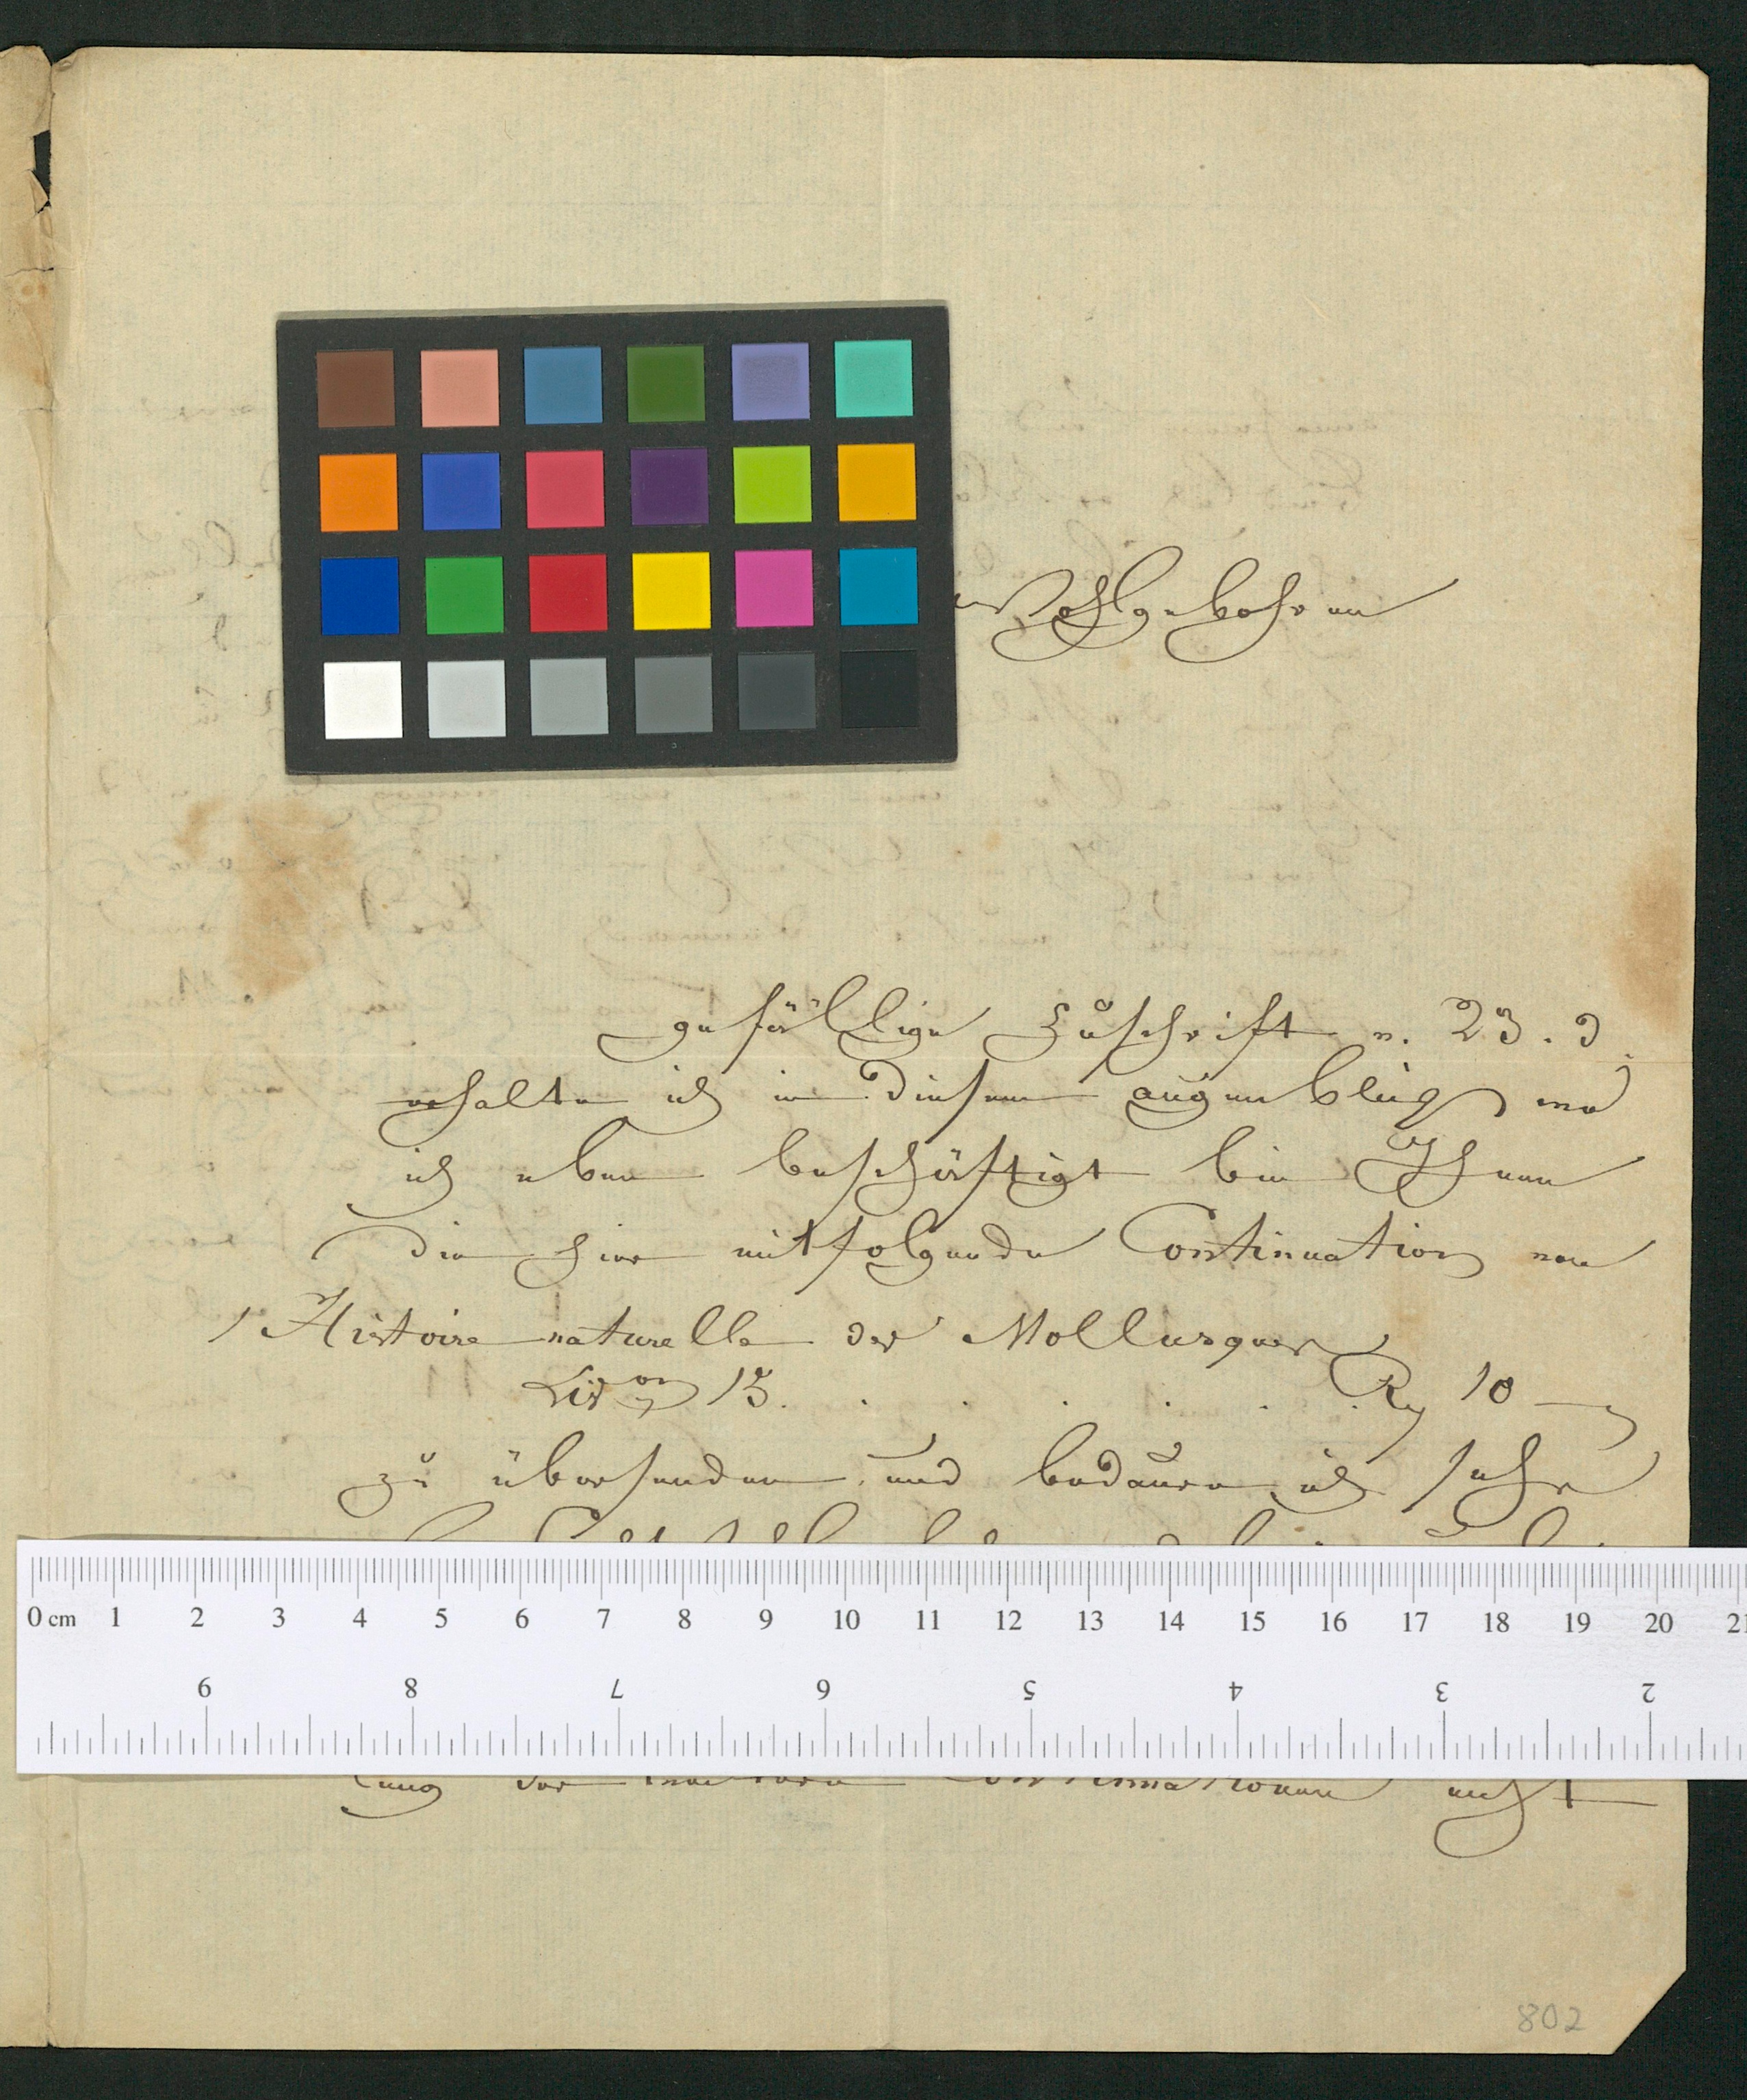 Wohlgebohren
gefällige Zuschrift v. 23. d
erhalte ich in diesem augenblick, wo
ich eben beschäftigt bin Ihnen
die hier mitfolgende Continuation von
1 Histoire naturelle des Mollusques
Livon 15. . . . . . . R 10 —
zu übersenden, und bedaure ich sehr
0 cm 1 2 3 4 5 6 7 8 9 10 11 12 13 14 15 16 17 18 19 20 21
9 8 7 6 5 4 3 2
lung der weitern Continuationen nicht
802